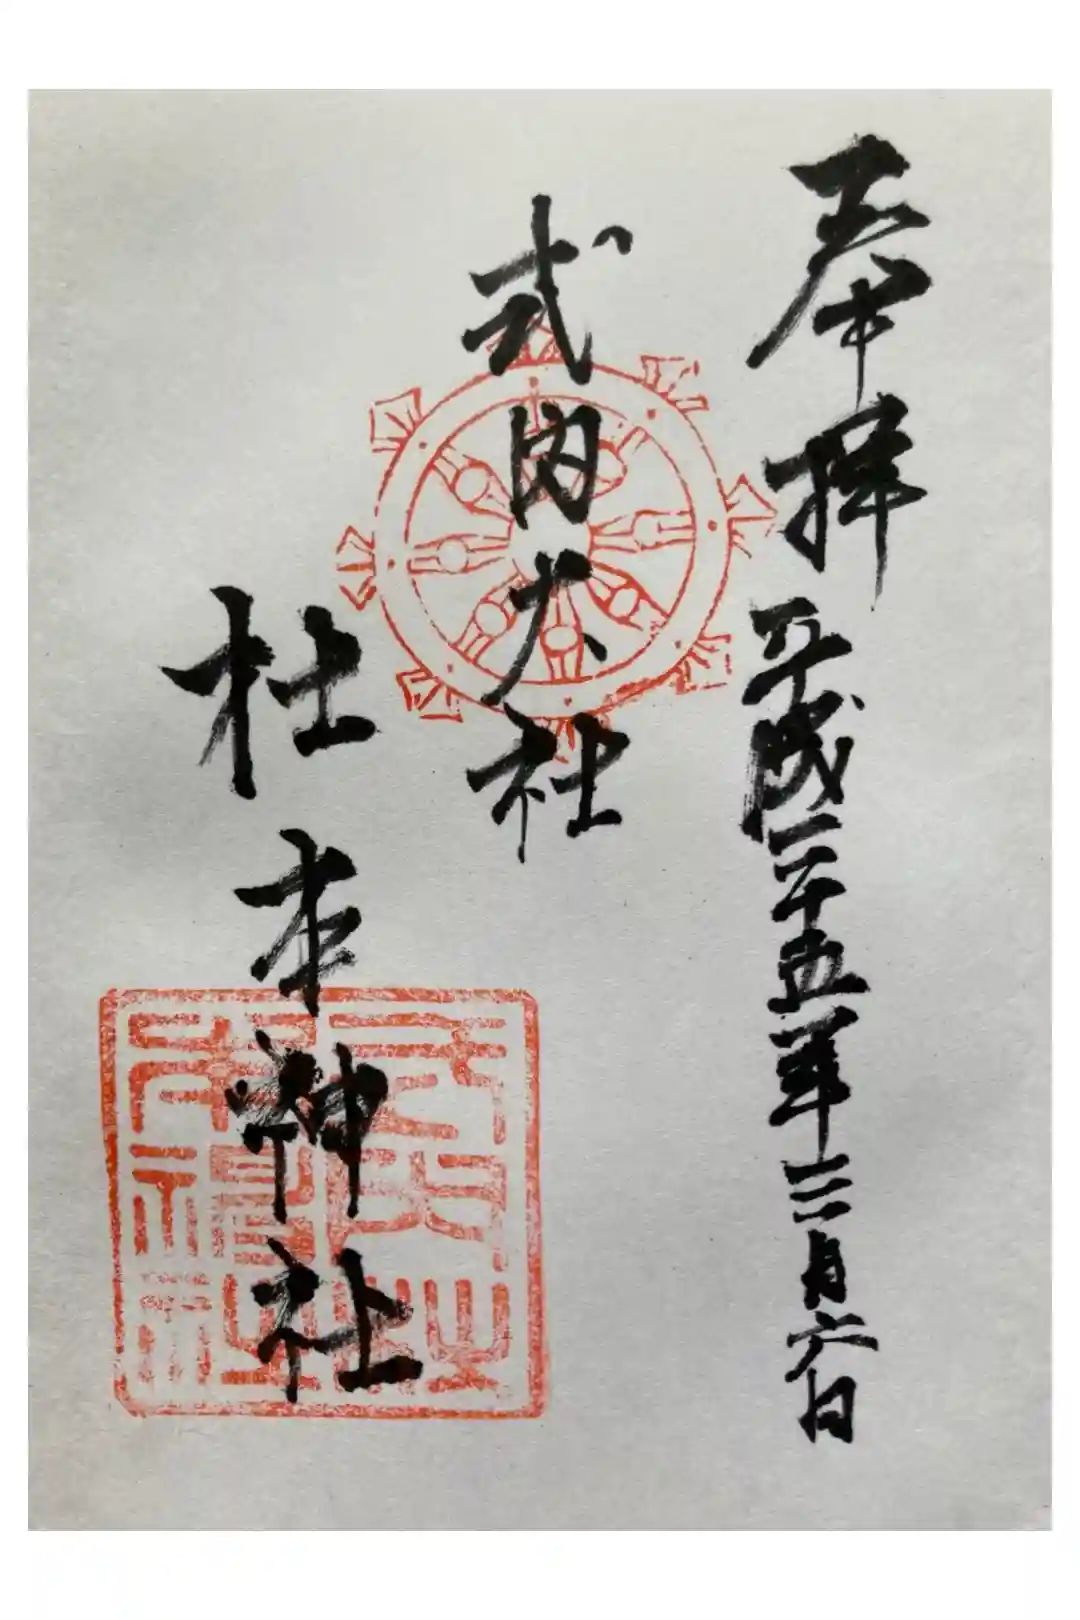 奉拝 平成二十五年三月六日
式内大社
杜本神社